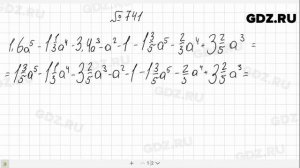 GDZ.RU
№741
1.6a⁵ - 1 1/3 a⁴ - 3.4a³ - a² - 1 - 1 3/5 a⁵ - 2/3 a⁴ + 3 2/5 a³ =
= 1 3/5 a⁵ - 1 1/3 a⁴ - 3 2/5 a³ - a² - 1 - 1 3/5 a⁵ - 2/3 a⁴ + 3 2/5 a³ =
GDZ.RU